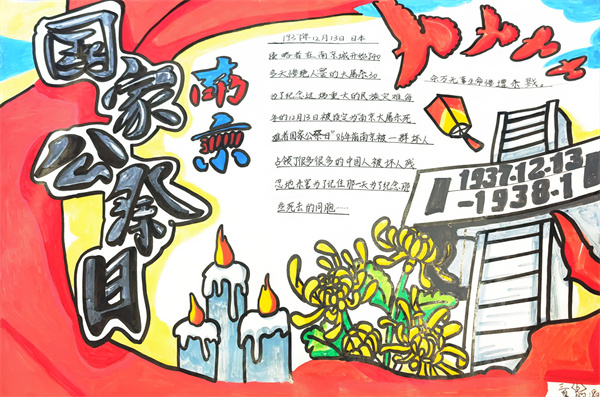 国家公祭日
南京
1937年12月13日 日本
侵略者在南京城开始了40
多天惨绝人寰的大屠杀30
为了纪念这场重大的民族灾难每
年的12月13日被设定为南京大屠杀死
难者国家公祭日"86年前南京被一群坏人
占领了很多很多的中国人被坏人残
忍地杀害为了记住那一天为了纪念那
些死去的同胞……
余万无辜生命惨遭杀戮。
1937.12.13
-1938.1